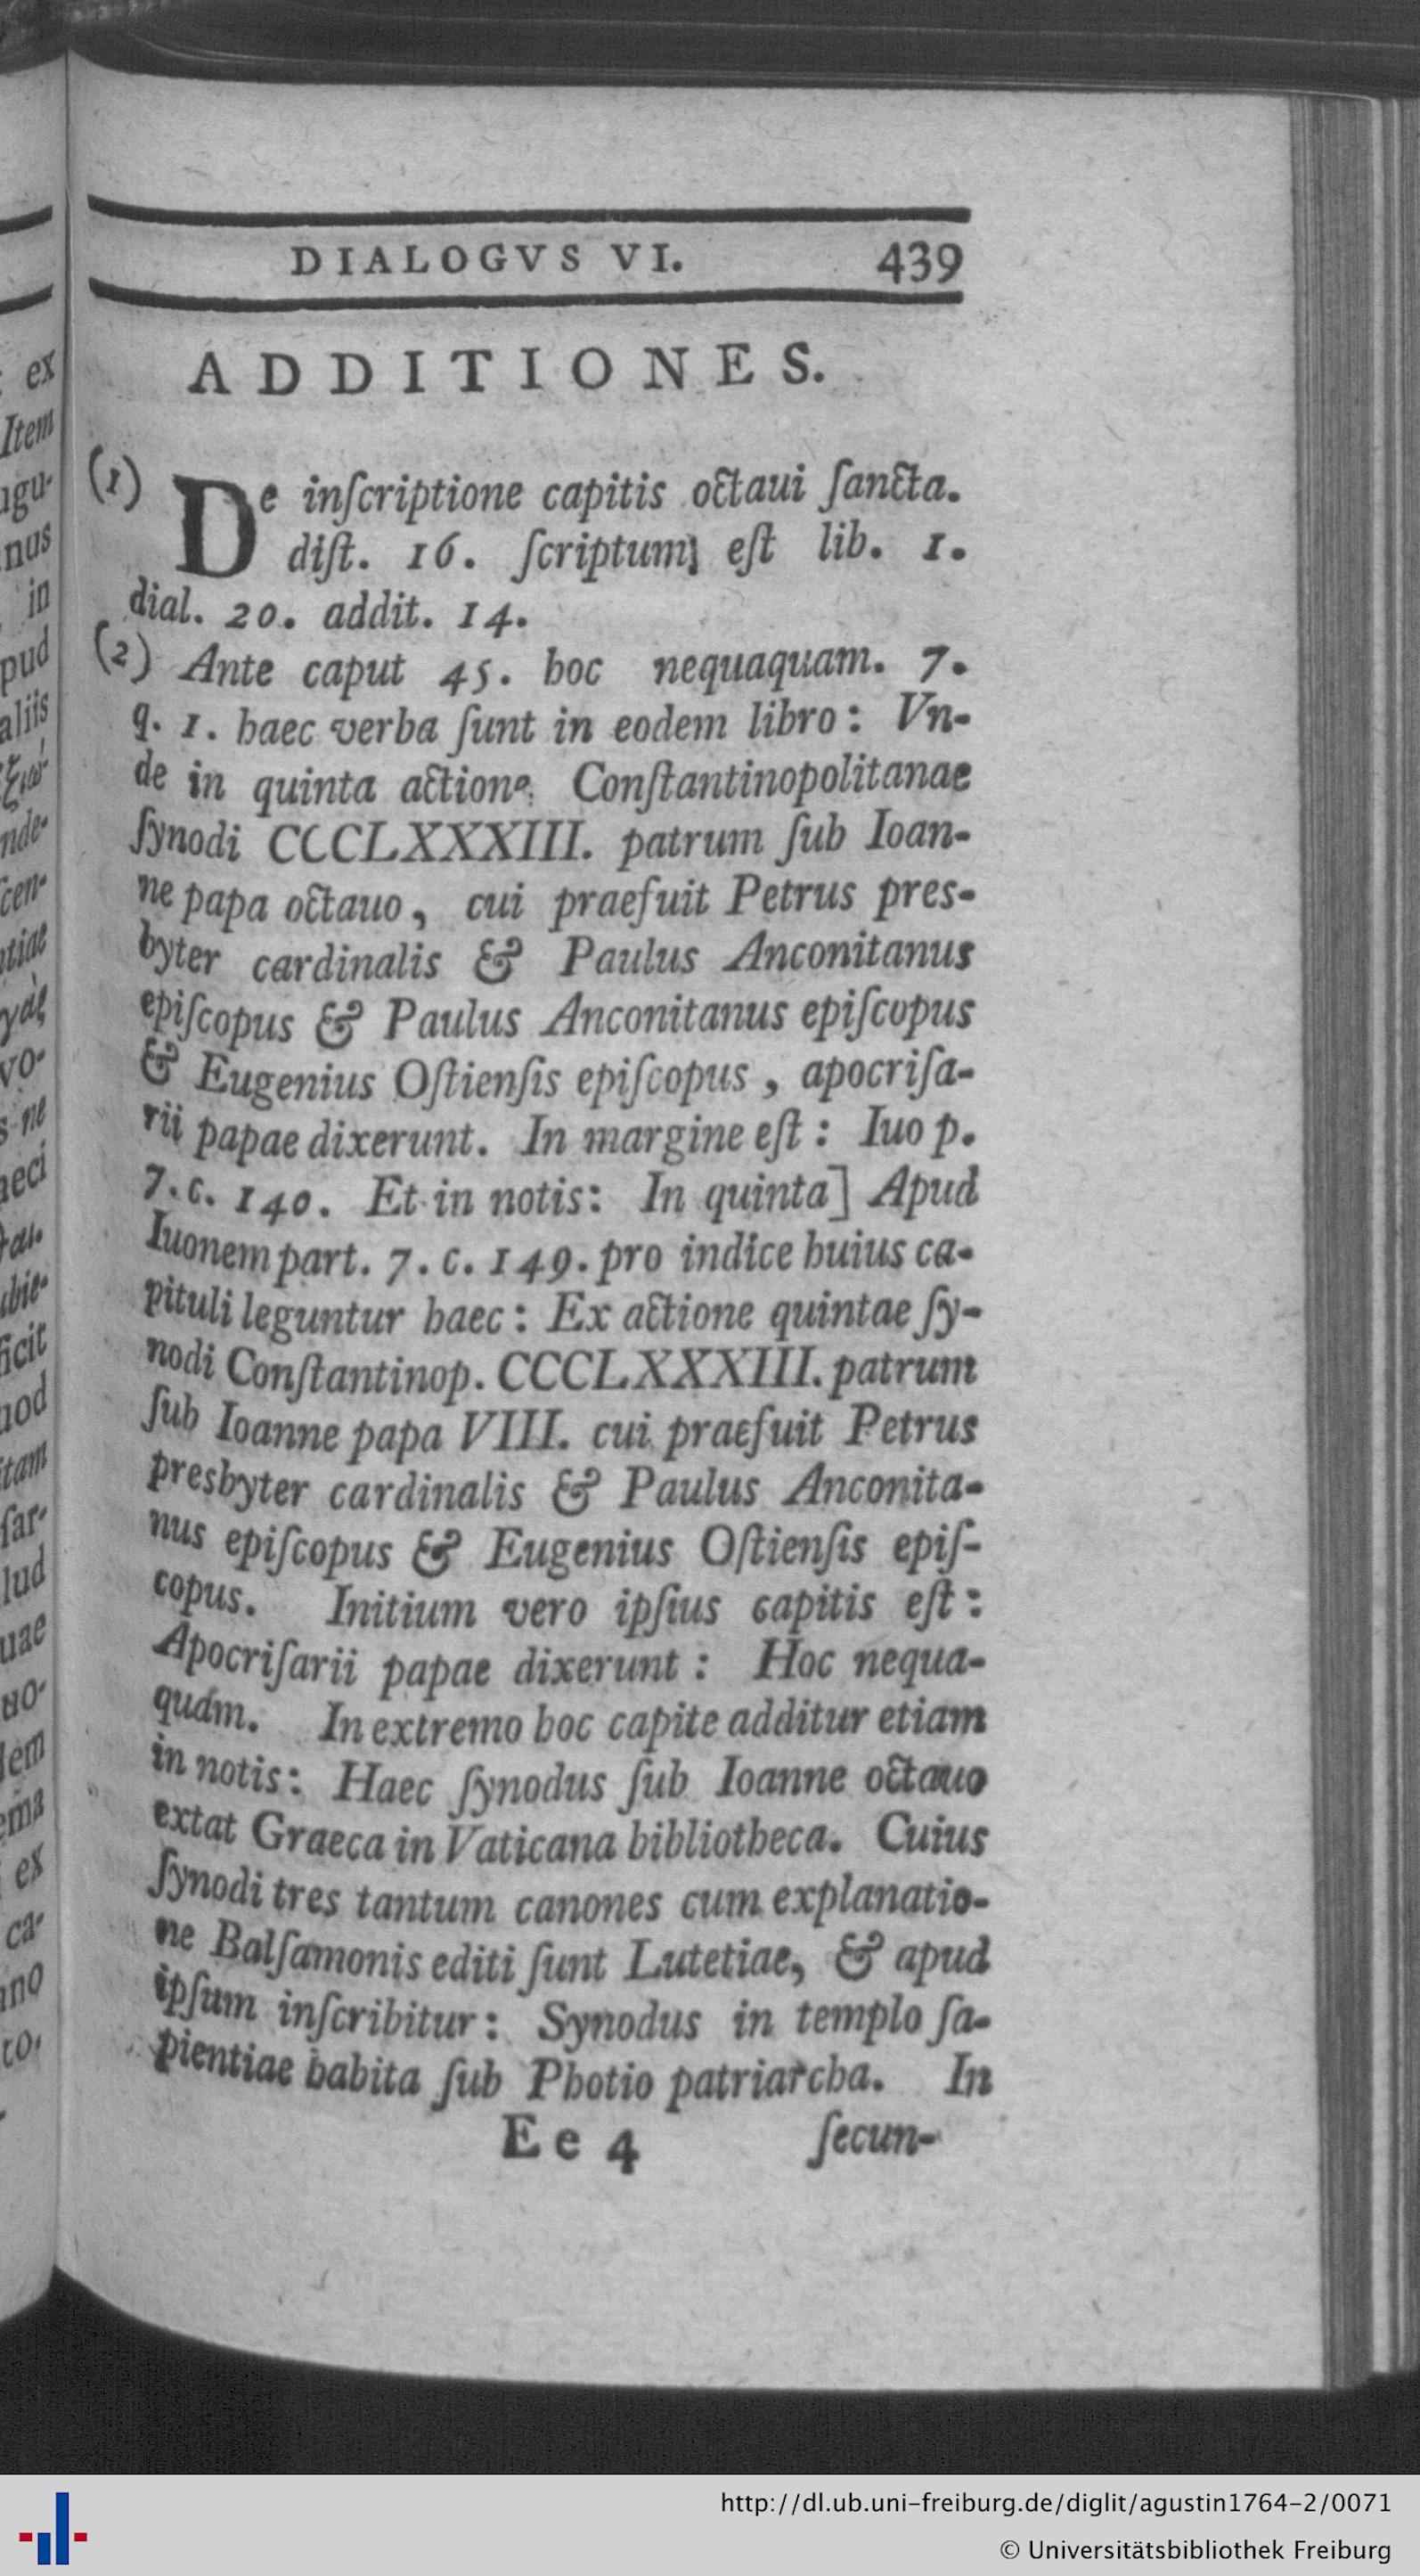 DIALOGVS VI. 439
ADDITIONES.
(1) De inſcriptione capitis octaui ſancta.
diſt. 16. ſcriptum eſt lib. 1.
dial. 20. addit. 14.
(2) Ante caput 45. hoc nequaquam. 7.
q. 1. haec verba ſunt in eodem libro: Vn-
de in quinta actione Conſtantinopolitanae
ſynodi CCCLXXXIII. patrum ſub Ioan-
ne papa octauo, cui praefuit Petrus pres-
byter cardinalis & Paulus Anconitanus
epiſcopus & Paulus Anconitanus epiſcopus
& Eugenius Oſtienſis epiſcopus, apocriſa-
rii papae dixerunt. In margine eſt: Iuo p.
7. c. 140. Et in notis: In quinta] Apud
Iuonem part. 7. c. 149. pro indice huius ca-
pituli leguntur haec: Ex actione quintae ſy-
nodi Conſtantinop. CCCLXXXIII. patrum
ſub Ioanne papa VIII. cui praefuit Petrus
presbyter cardinalis & Paulus Anconita-
nus epiſcopus & Eugenius Oſtienſis epiſ-
copus. Initium vero ipſius capitis eſt:
Apocriſarii papae dixerunt: Hoc nequa-
quam. In extremo hoc capite additur etiam
in notis: Haec ſynodus ſub Ioanne octauo
extat Graeca in Vaticana bibliotheca. Cuius
ſynodi tres tantum canones cum explanatio-
ne Balſamonis editi ſunt Lutetiae, & apud
ipſum inſcribitur: Synodus in templo ſa-
pientiae habita ſub Photio patriarcha. In
Ee 4 ſecun-
http://dl.ub.uni-freiburg.de/diglit/agustin1764-2/0071
© Universitätsbibliothek Freiburg